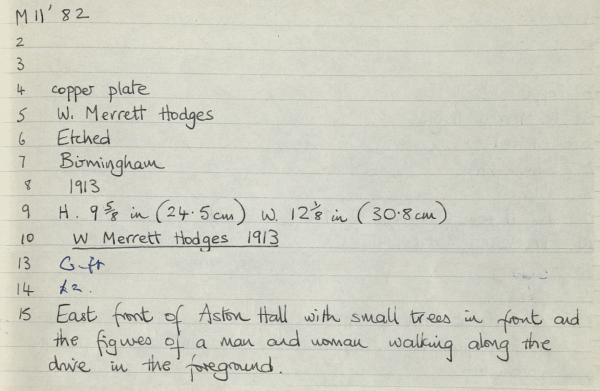 M11' 82
2
3
4 copper plate
5 W. Merrett Hodges
6 Etched
7 Birmingham
8 1913
9 H. 9 5/8 in (24.5cm) W. 12 1/8 in (30.8cm)
10 W Merrett Hodges 1913
13 Gift
14 £2.
15 East front of Aston Hall with small trees in front and
the figures of a man and woman walking along the
drive in the foreground.